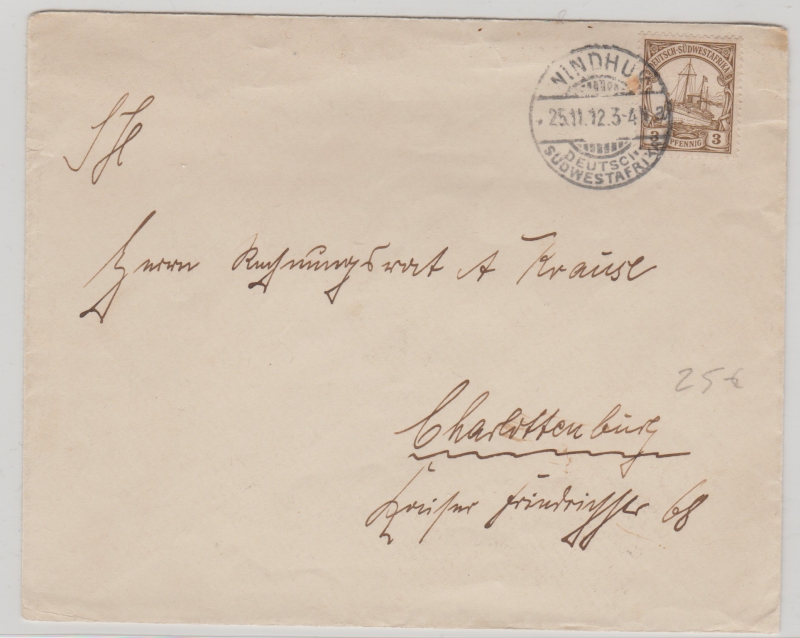 WINDHUK
25.11.12.3-4N.a
DEUTSCH-
SÜDWESTAFRIKA
DEUTSCH-SÜDWESTAFRIKA
3 PFENNIG 3
Herrn Rechnungsrat A Krause
25€
Charlottenburg
Kaiser Friedrichstr 68